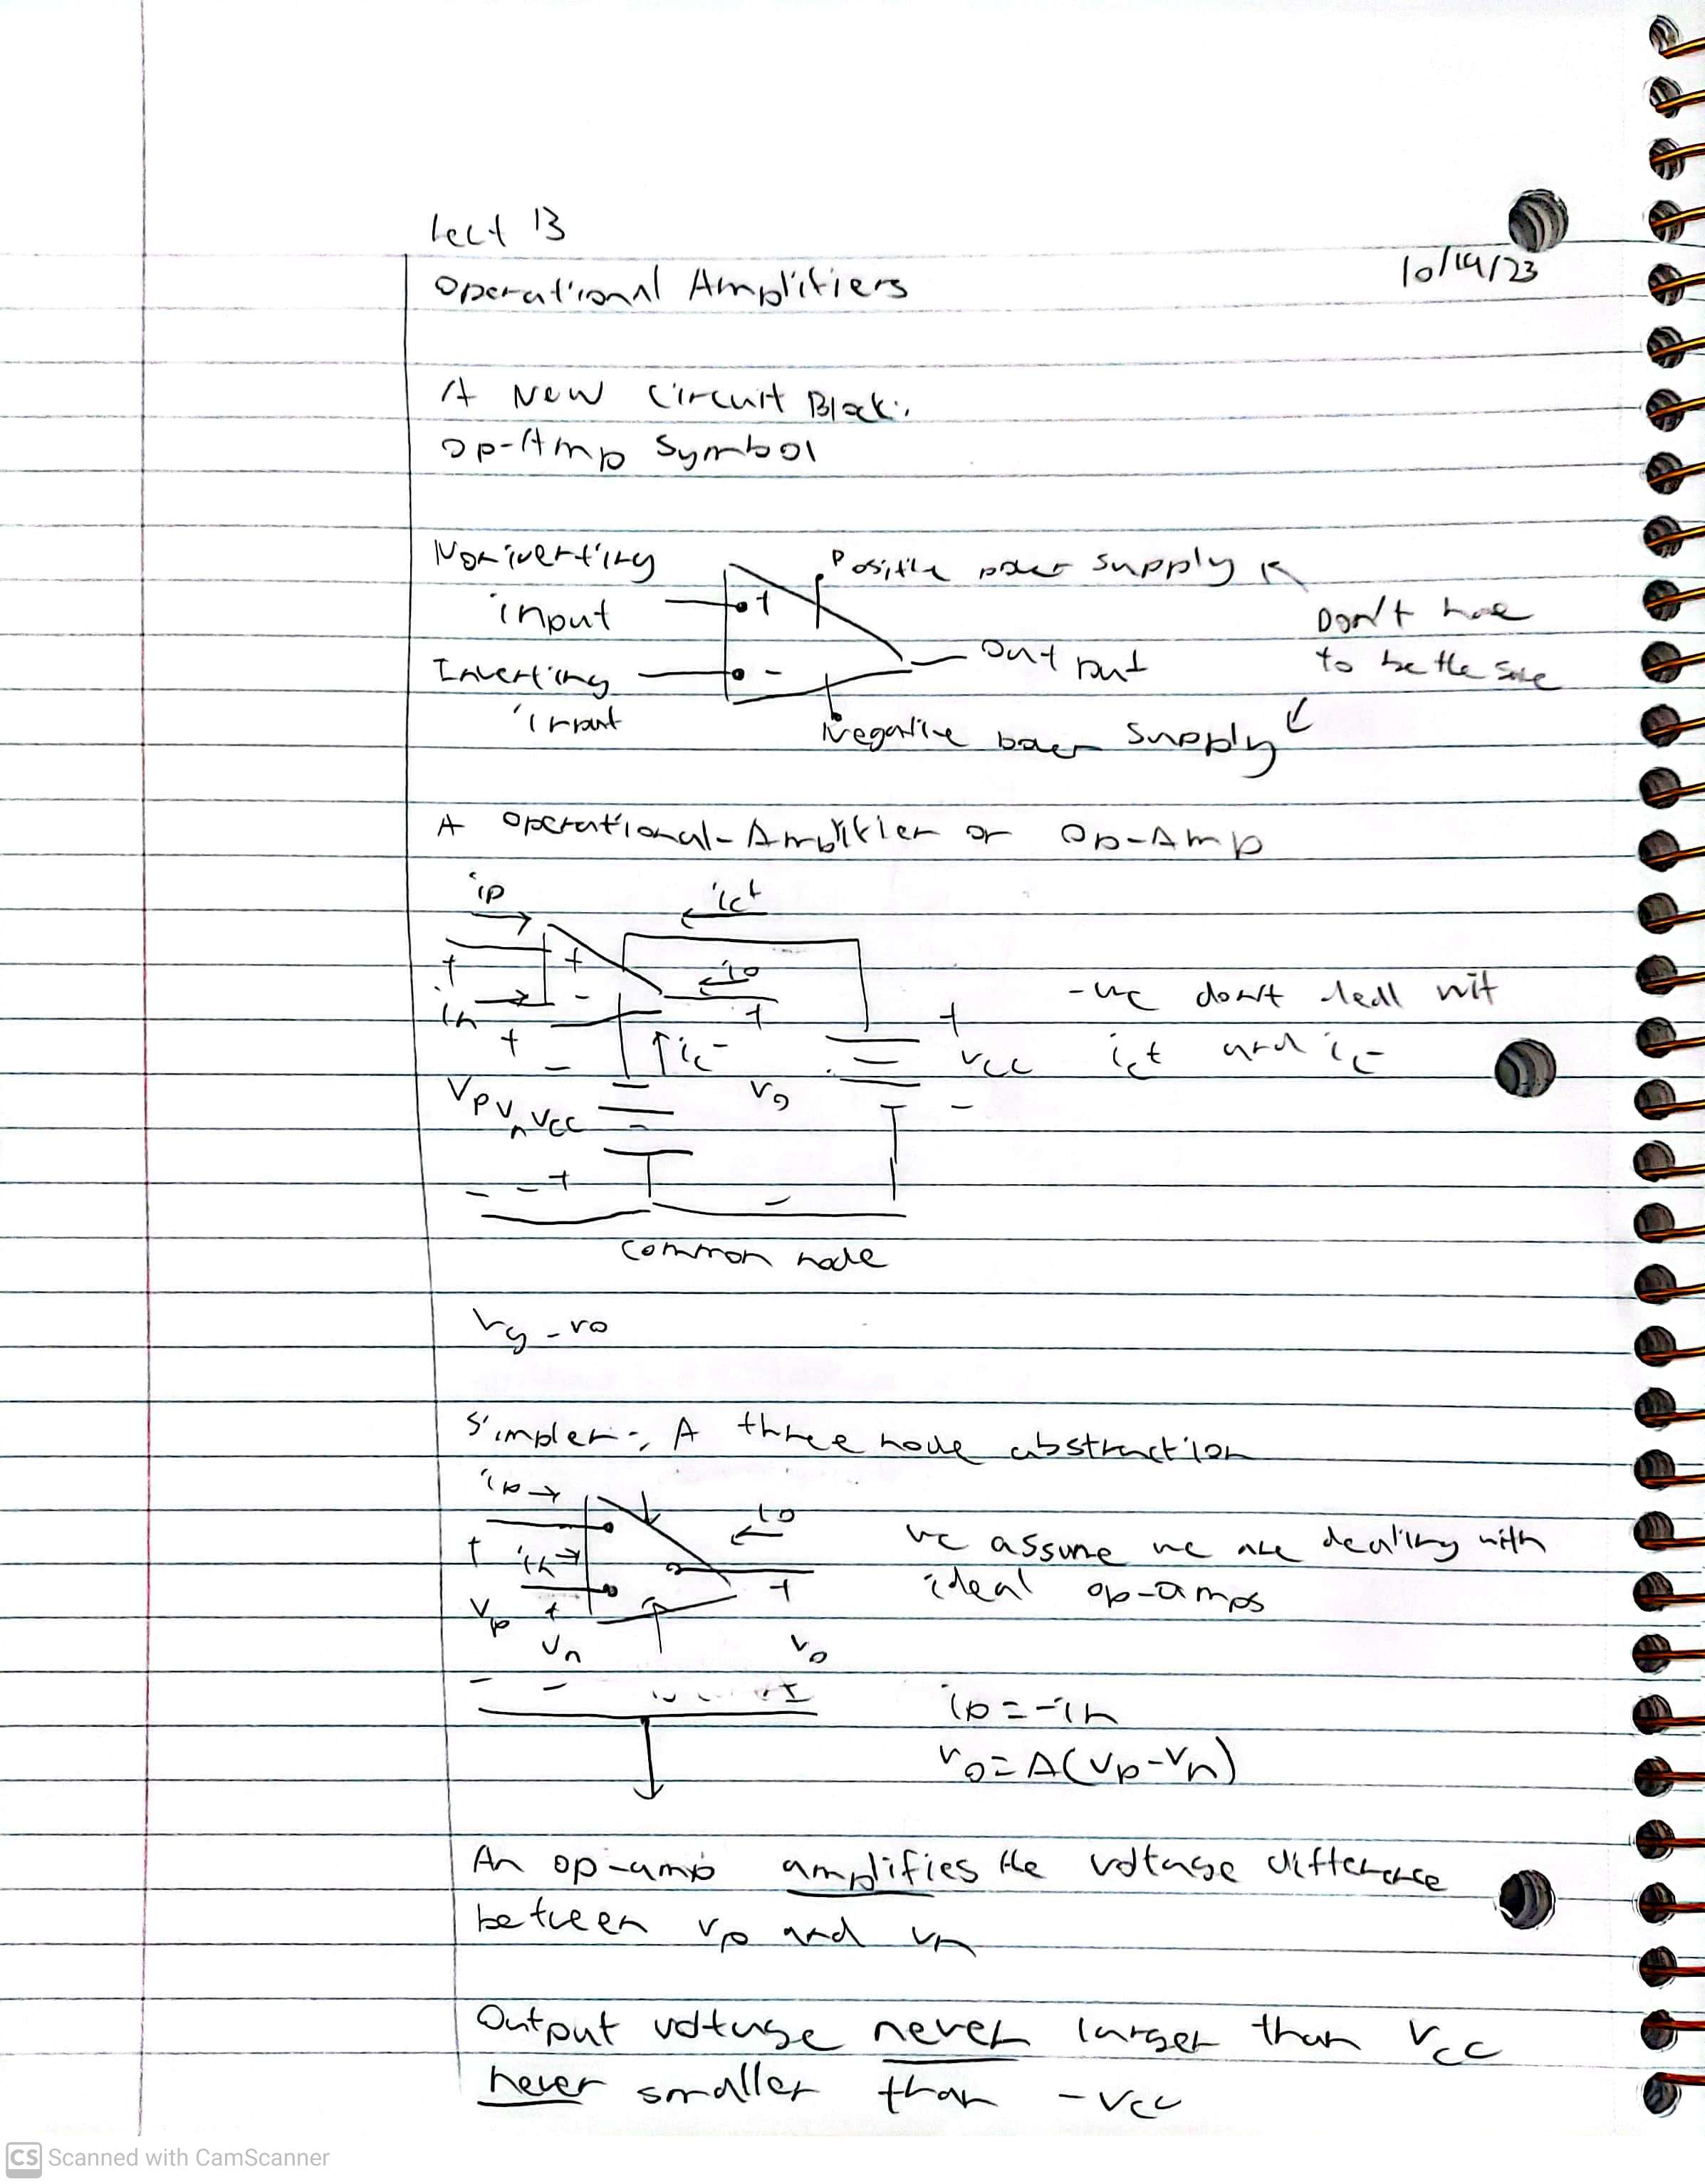 Lect 13
10/19/23
Operational Amplifiers
A New Circuit Block:
Op-Amp Symbol
Noninverting
input
Inverting
input
+
-
Positive power supply
Output
Negative power supply
Don't have
to be the same
A operational-Amplifier or Op-Amp
ip
ic+
+
+
-
io
in
+
+
ic-
-
Vp
Vn
Vcc
Vo
+
Vcc
-
-
-
+
-
common node
-we don't deal wit
ic+ and ic-
Vg-vo
Simpler:, A three node abstraction
ip
io
+
in
+
Vp
+
Vn
Vo
-
-
we assume we are dealing with
ideal op-amps
ip=-in
vo=A(Vp-Vn)
An op-amp amplifies the voltage difference
between vp and vn
Output voltage never larger than Vcc
never smaller than -Vcc
CS Scanned with CamScanner